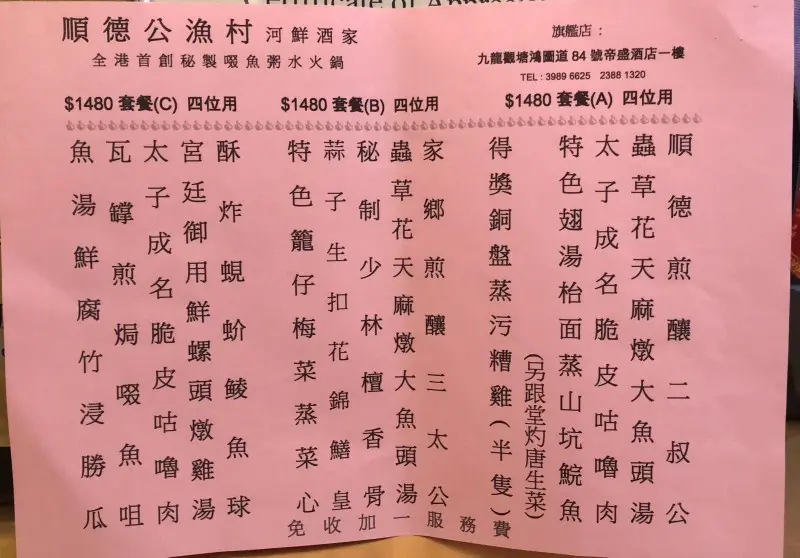 順德公漁村 河鮮酒家
全港首創秘製啜魚粥水火鍋
旗艦店：
九龍觀塘鴻圖道 84 號帝盛酒店一樓
TEL : 3989 6625 2388 1320
$1480 套餐(A) 四位用
順德煎釀二叔公
蟲草花天麻燉大魚頭湯
太子成名脆皮咕嚕肉
特色翅湯枱面蒸山坑鯇魚
(另跟堂灼唐生菜)
得獎銅盤蒸污糟雞(半隻)
$1480 套餐(B) 四位用
家鄉煎釀三太公
蟲草花天麻燉大魚頭湯
秘制少林檀香骨
蒜子生扣花錦鱔皇
特色籠仔梅菜蒸菜心
$1480 套餐(C) 四位用
酥炸蜆蚧鯪魚球
宮廷御用鮮螺頭燉雞湯
太子成名脆皮咕嚕肉
瓦罉煎焗啜魚咀
魚湯鮮腐竹浸勝瓜
免收加一服務費